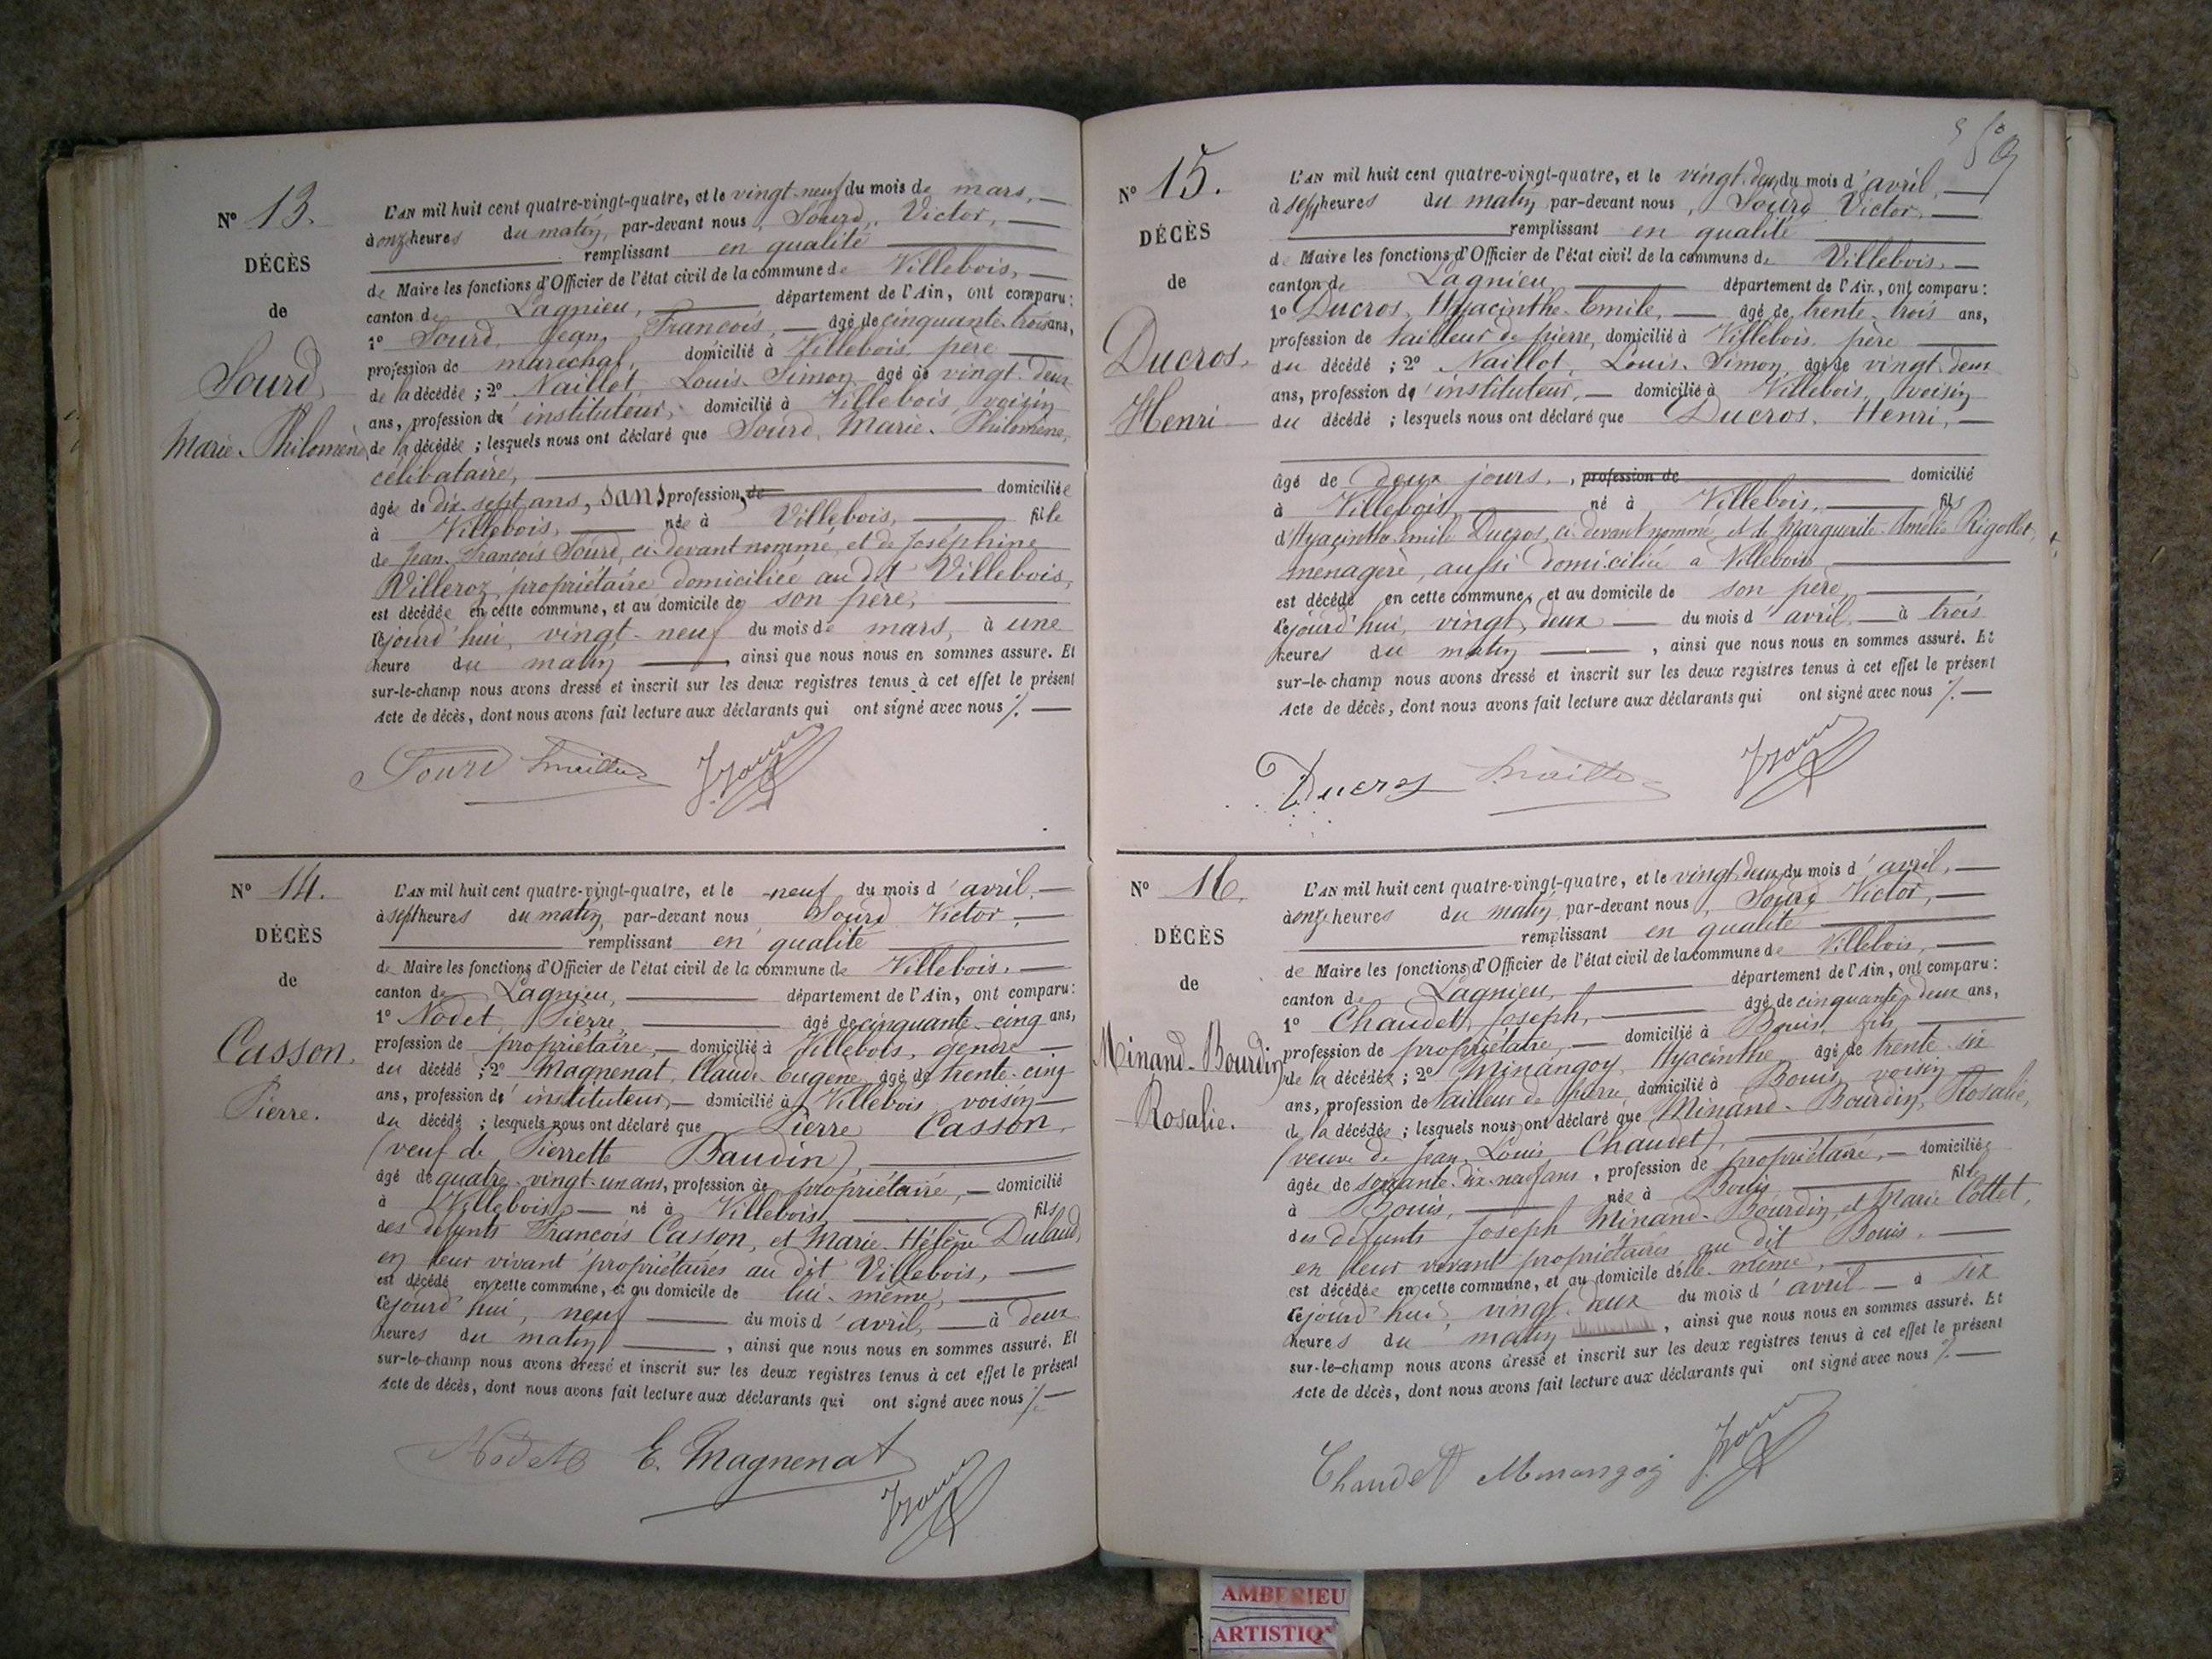 Nº 13.
DÉCÈS
de
Sourd,
Marie-Philomène
L'AN mil huit cent quatre-vingt-quatre, et le vingt-neuf du mois de mars,
à onze heures du matin, par-devant nous, Sourd, Victor,
remplissant en qualité
de Maire les fonctions d'Officier de l'état civil de la commune de Villebois,
canton de Lagnieu, département de l'Ain, ont comparu:
1º Sourd, Jean François, âgé de cinquante-trois ans,
profession de maréchal, domicilié à Villebois, père
de la décédée; 2º Naillot, Louis-Simon âgé de vingt-deux
ans, profession d'instituteur, domicilié à Villebois, voisin
de la décédée; lesquels nous ont déclaré que Sourd, Marie-Philomène,
célibataire,
âgée de dix-sept ans, sans profession, de domiciliée
à Villebois, née à Villebois, fille
de Jean-François Sourd, ci-devant nommé, et de Joséphine
Villeroz, propriétaire domiciliée au dit Villebois,
est décédée en cette commune, et au domicile de son père,
cejourd'hui, vingt-neuf du mois de mars, à une
heure du matin, ainsi que nous nous en sommes assuré. Et
sur-le-champ nous avons dressé et inscrit sur les deux registres tenus à cet effet le présent
Acte de décès, dont nous avons fait lecture aux déclarants qui ont signé avec nous ./.
Sourd
Nº 14.
DÉCÈS
de
Casson,
Pierre.
L'AN mil huit cent quatre-vingt-quatre, et le neuf du mois d'avril,
à sept heures du matin, par-devant nous Sourd Victor,
remplissant en qualité
de Maire les fonctions d'Officier de l'état civil de la commune de Villebois,
canton de Lagnieu, département de l'Ain, ont comparu:
1º Nodet, Pierre, âgé de cinquante-cinq ans,
profession de propriétaire, domicilié à Villebois, gendre
du décédé; 2º Magnenat, Claude-Eugène, âgé de trente-cinq
ans, profession d'instituteur, domicilié à Villebois, voisin
du décédé; lesquels nous ont déclaré que Pierre Casson,
(veuf de Pierrette Baudin),
âgé de quatre-vingt-un ans, profession de propriétaire, domicilié
à Villebois, né à Villebois, fils
des défunts François Casson, et Marie-Hélène Dulaud,
en leur vivant propriétaires au dit Villebois,
est décédé en cette commune, et au domicile de lui-même,
cejourd'hui, neuf du mois d'avril, à deux
heures du matin, ainsi que nous nous en sommes assuré. Et
sur-le-champ nous avons dressé et inscrit sur les deux registres tenus à cet effet le présent
Acte de décès, dont nous avons fait lecture aux déclarants qui ont signé avec nous ./.
Nodet E. Magnenat
Nº 15.
DÉCÈS
de
Ducros,
Henri
L'AN mil huit cent quatre-vingt-quatre, et le vingt-deux du mois d'avril,
à sept heures du matin, par-devant nous, Sourd Victor,
remplissant en qualité
de Maire les fonctions d'Officier de l'état civil de la commune de Villebois,
canton de Lagnieu, département de l'Ain, ont comparu:
1º Ducros, Hyacinthe-Emile, âgé de trente-trois ans,
profession de tailleur de pierre, domicilié à Villebois, père
du décédé; 2º Naillot, Louis-Simon, âgé de vingt-deux
ans, profession d'instituteur, domicilié à Villebois, voisin
du décédé; lesquels nous ont déclaré que Ducros, Henri,
âgé de deux jours, profession de domicilié
à Villebois, né à Villebois, fils
d'Hyacinthe-Emile Ducros, ci-devant nommé, et de Marguerite-Amélie Rigollet,
ménagère, aussi domiciliée à Villebois,
est décédé en cette commune, et au domicile de son père,
cejourd'hui, vingt-deux du mois d'avril, à trois
heures du matin, ainsi que nous nous en sommes assuré. Et
sur-le-champ nous avons dressé et inscrit sur les deux registres tenus à cet effet le présent
Acte de décès, dont nous avons fait lecture aux déclarants qui ont signé avec nous ./.
Ducros
Nº 16.
DÉCÈS
de
Minand-Bourdin
Rosalie.
L'AN mil huit cent quatre-vingt-quatre, et le vingt-deux du mois d'avril,
à onze heures du matin, par-devant nous, Sourd Victor,
remplissant en qualité
de Maire les fonctions d'Officier de l'état civil de la commune de Villebois,
canton de Lagnieu, département de l'Ain, ont comparu:
1º Chaudet, Joseph, âgé de cinquante-deux ans,
profession de propriétaire, domicilié à Bouis, fils
de la décédée; 2º Minangoy, Hyacinthe âgé de trente-six
ans, profession de tailleur de pierre, domicilié à Bouis, voisin
de la décédée; lesquels nous ont déclaré que Minand-Bourdin, Rosalie,
(veuve de Jean-Louis Chaudet),
âgée de soixante-dix-neuf ans, profession de propriétaire, domiciliée
à Bouis, née à Bouis, fille
des défunts Joseph Minand-Bourdin, et Marie Cottet,
en leur vivant propriétaires au dit Bouis,
est décédée en cette commune, et au domicile d'elle-même,
cejourd'hui, vingt-deux du mois d'avril à six
heures du matin, ainsi que nous nous en sommes assuré. Et
sur-le-champ nous avons dressé et inscrit sur les deux registres tenus à cet effet le présent
Acte de décès, dont nous avons fait lecture aux déclarants qui ont signé avec nous ./.
Chaudet Minangoy
AMBERIEU
ARTISTIQ